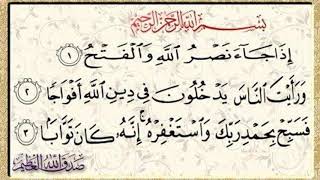 بِسْمِ اللَّهِ الرَّحْمَٰنِ الرَّحِيمِ
إِذَا جَاءَ نَصْرُ اللَّهِ وَالْفَتْحُ ١
وَرَأَيْتَ النَّاسَ يَدْخُلُونَ فِي دِينِ اللَّهِ أَفْوَاجًا ٢
فَسَبِّحْ بِحَمْدِ رَبِّكَ وَاسْتَغْفِرْهُ إِنَّهُ كَانَ تَوَّابًا ٣
صدق الله العظيم